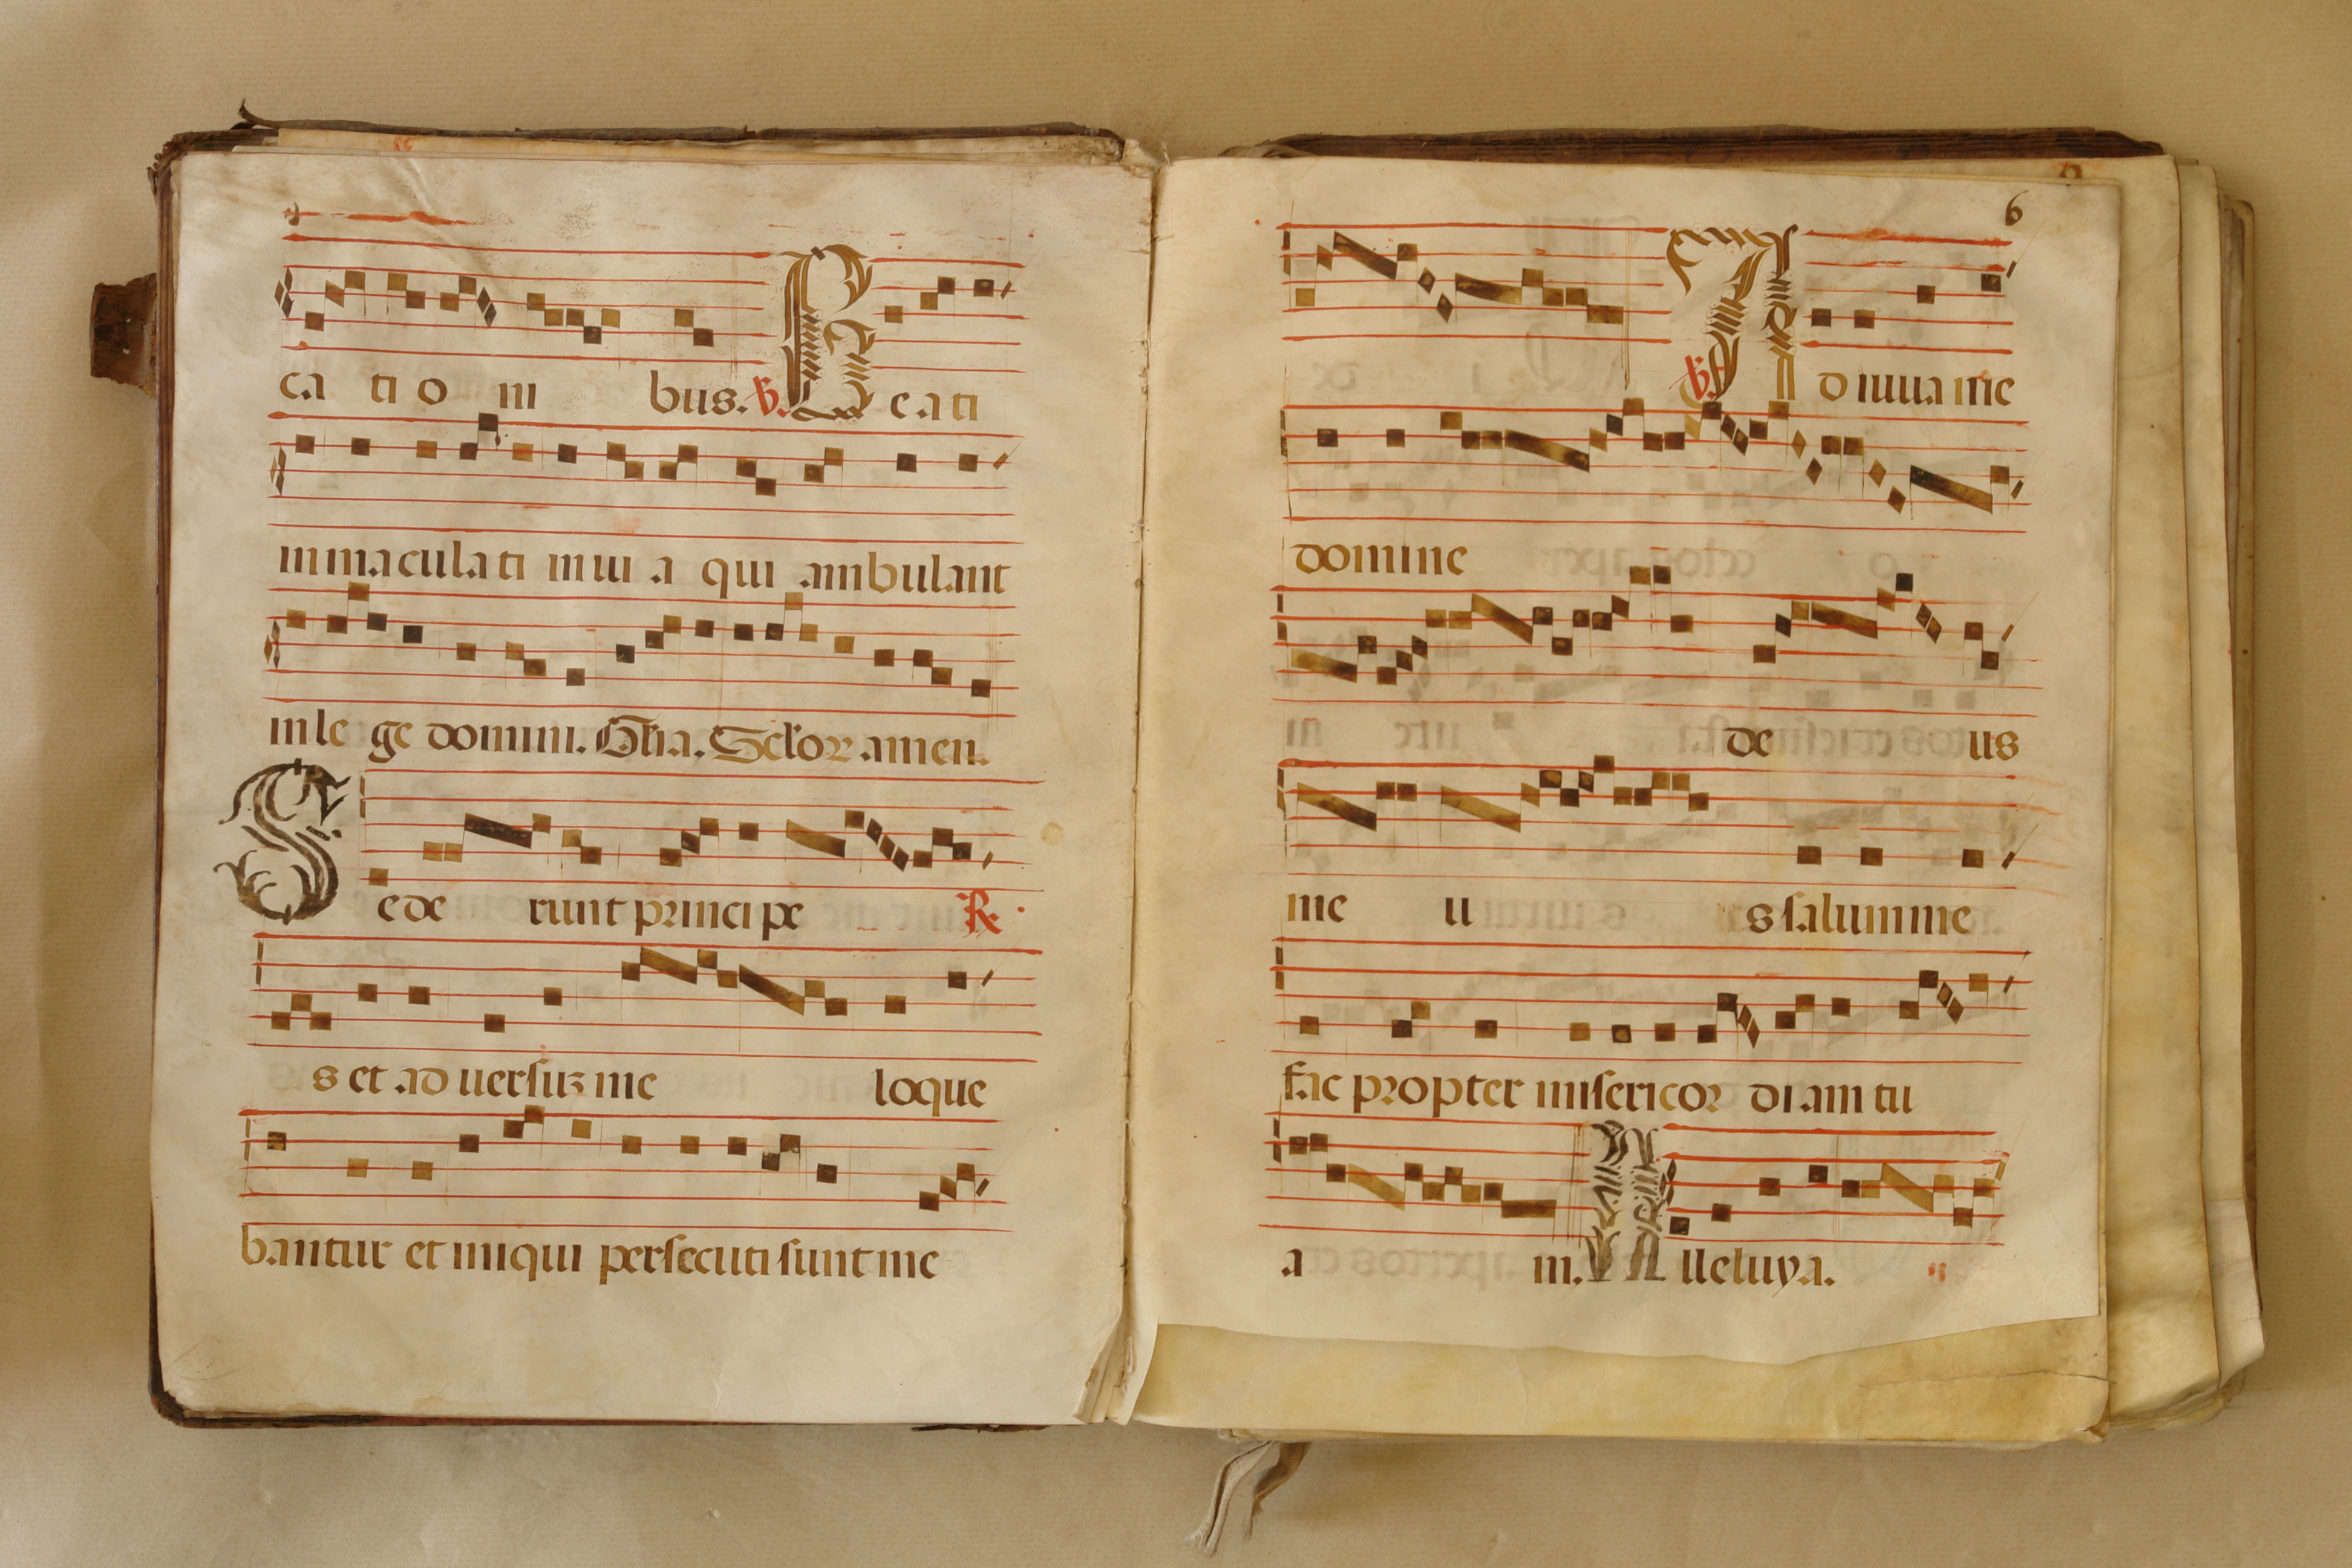 ca ti o ni bus. ℣. Beati
inmaculati in ui a qui ambulant
in le ge domini. Gl'ia. Sclor amen.
Sede runt principe ℟.
s et ad uersuz me loque
bantur et iniqui persecuti sunt me
6
℣. Adiuua me
domine
de us
me u s saluum me
fac propter misericor diam tu
a m. Alleluya.